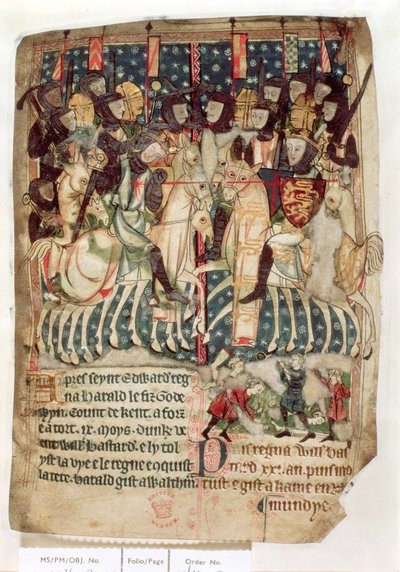 pres seynt Edward reg
na Harald le fiz Gode
wyn. Count de kent. a for
e a tort. ix. moys. Dunk ve
ent will bastard. e ly tol
yst la vye e le regne e conquist
la tere. Harald gist a Waltham
D is regna will bas
an
rust e gist a kame en
mundye.
BRITISH
MUSEUM
MS/PM/OBJ. No. Folio/Page Order No.